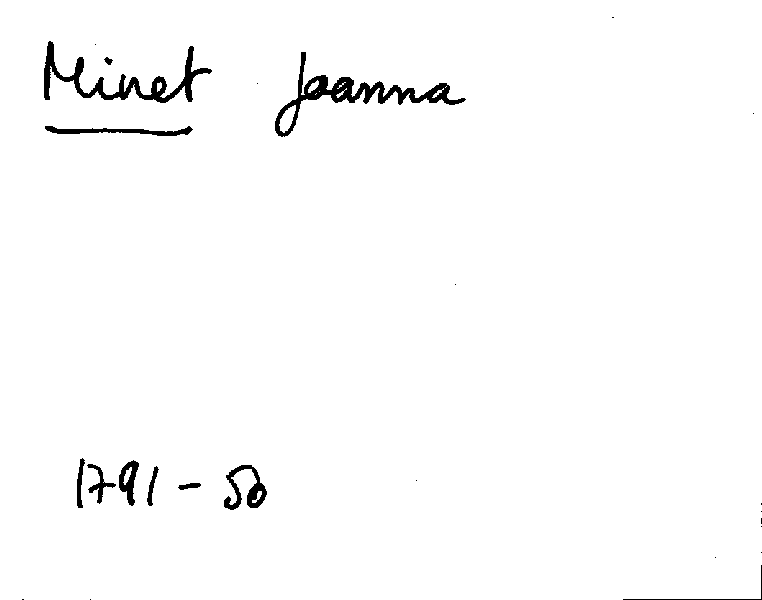 Minet Joanna
1791 - 50